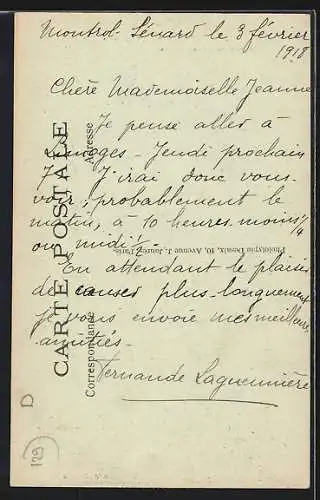 Montrol-Sénard le 3 février
1918
Chère Mademoiselle Jeanne
Je pense aller à
Limoges - Jeudi prochain
7. J'irai donc vous
voir, probablement le
matin, à 10 heures moins 1/4
ou midi 1/2.
En attendant le plaisir
de causer plus longuement
je vous envoie mes meilleures
amitiés -
Fernande Laguennière
CARTE POSTALE
Correspondance
Adresse
Phototypie Desaix, 10, Avenue J. Jaurès, Paris
D
129